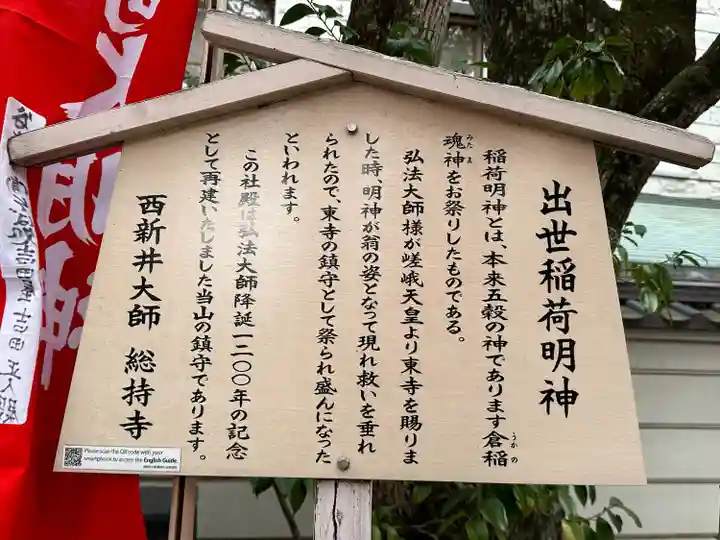 出世稲荷明神
稲荷明神とは、本来五穀の神であります倉稲
うかの
魂神をお祭りしたものである。
みたま
弘法大師様が嵯峨天皇より東寺を賜りま
した時、明神が翁の姿となって現れ救いを垂れ
られたので、東寺の鎮守として祭られ盛んになった
といわれます。
この社殿は弘法大師降誕一二〇〇年の記念
として再建いたしました当山の鎮守であります。
西新井大師 総持寺
Please scan the QR code with your
smartphone to access the English Guide.